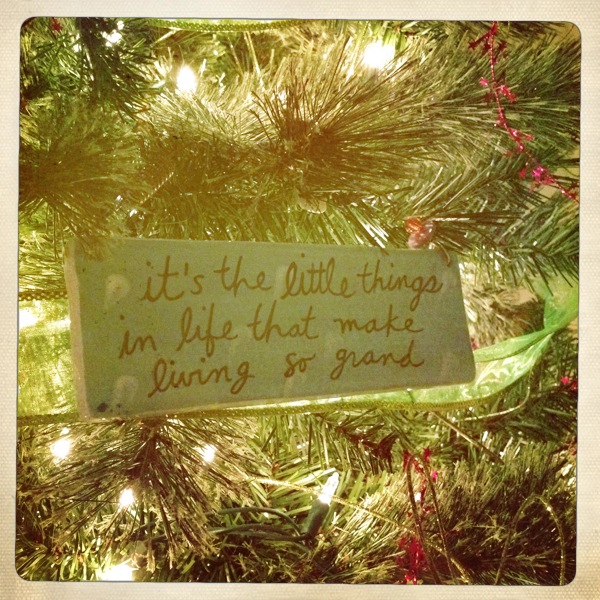 it's the little things
in life that make
living so grand